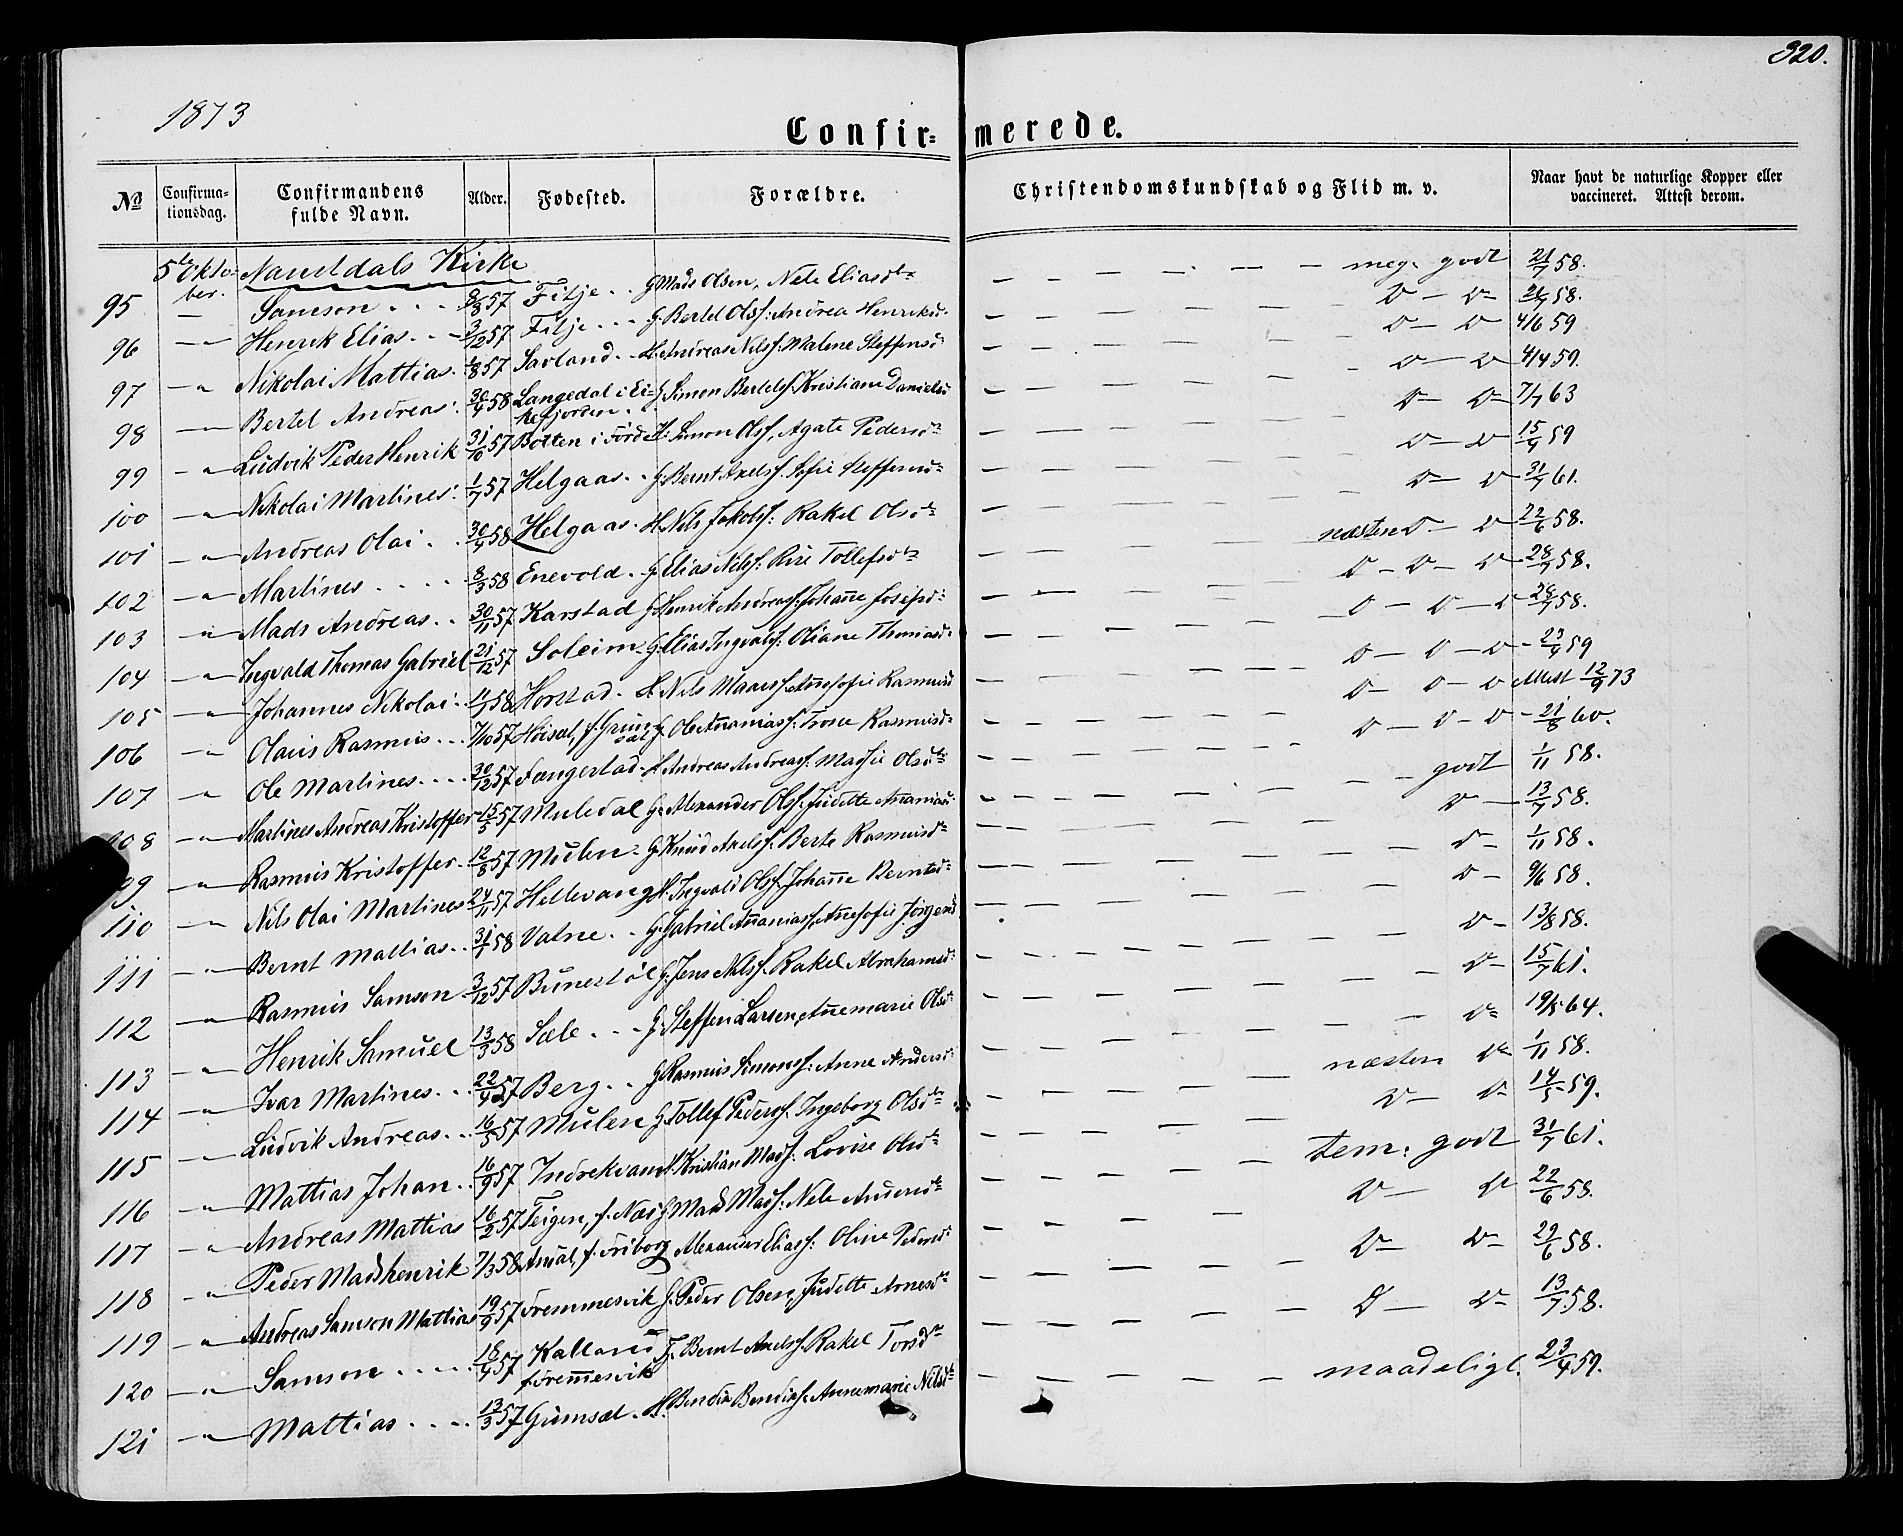 320.
1873
Confir= merede.
No Confirmationsdag. Confirmandens fulde Navn. Alder. Fødested. Forældre. Christendomskundskab og Flid m. v. Naar havt de naturlige Kopper eller vaccineret. Attest derom.
5te Oktober. Naustdals Kirke
95 Samson 8/8 57 Fitje G. Mads Olsen, Nele Eliasdtr meg. godt 21/7 58.
96 Henrik Elias 3/12 57 Fitje G. Bertel Olss: Andrea Henriksd. D - D 21/7 58.
97 Nikolai Mattias 57 Savland H. Andreas Nilss: Malene Steffensd: D - D 4/6 59
98 Bertel Andreas 30/4 58 Langedal i Eikefjorden G. Simon Bertels: Kristiane Danielsd D - D 4/4 59.
99 Ludvik Peder Henrik 31/10 57 Botten i Førde H. Simon Olss, Agate Pedersdtr D - D 7/7 63
100 Nikolai Martines 1/7 57 Helgaas G. Bernt Axelss: Sofie Steffensd D - D 15/9 59
101 Andreas Olai 30/4 58 Helgaas H. Nils Jakobs: Rakel Olsdtr D - D 31/7 61.
102 Martines 8/3 58 Enevold G. Elias Nilss: Tollefsdtr næsten D - D 22/6 58.
103 Mads Andreas 30/11 57 Karstad G. Henrik Andreass: Johanne Josefsd: D - D - D 28/7 58.
104 Ingvald Thomas Gabriel 21/12 57 Soleim G. Elias Ingvalds: Oliane Thomasd. D - D - D 28/7 58.
105 Johannes Nikolai 58 Horstad H. Nils Annesofie Rasmusd D - D - D 23/4 59
106 Olaus Rasmus 7/10 57 G. Ole Ananiass: Rasmusd: D - D - D Attest 12/9 73
107 Ole Martines 30/12 57 Fongestad H. Andreas Andreass. Olsdtr D - D - D 21/8 60.
108 Martines Andreas Kristoffer 15/5 57 Muledal G. Alexander Olss: Judette Ananiasd. godt 1/11 58.
109 Rasmus Kristoffer 12/8 57 Mulen G. Knud Axelss. Berte Rasmusdtr D 13/7 58.
110 Nils Olai Martines 24/11 57 Hellevang H. Ingvald Olss. Johanne Berntsd: D 1/11 58.
111 Bernt Mattias 58 Vatne G. Gabriel Ananiass, Annesofie Jørgensd D 9/6 58.
112 Rasmus Samson 3/12 57 Bunestøl G. Jens Nilss. Rakel Abrahamsd: D 13/8 58.
113 Henrik Samuel 13/3 58 Sæle G. Steffen Larsen, Annemarie Olsd: D 15/7 61.
114 Ivar Martines 22/4 57 Berg G. Rasmus Simons: Anne Andersd: D 19/5 64.
115 Ludvik Andreas 16/5 57 Mulen G. Tollef Peders. Ingeborg Olsdtr næsten D 1/11 58.
116 Mattias Johan 16/9 57 Indrekvam H. Kristian Mads: Lovise Olsdtr D - D 14/5 59.
117 Andreas Mattias 16/2 57 Teigen, f. Næs G. Mads Mads: Nele Andersdtr tem: godt 31/7 61.
118 Peder Madshenrik 7/3 58 f. Friborg Alexander Eliass: Oline Pedersd: D - D 22/6 58.
119 Andreas Samson Mattias 19/9 57 Fremmesvik G. Peder Olsen, Judette Arnesdtr D - D 29/6 58.
120 Samson 18/4 57 Kalland f. Fremmesvik F. Bernt Axels. Rakel Torsdtr D - D 13/7 58.
121 Mattias 13/3 57 Gumsæl H. Bendix Bendixs. Annemarie Nilsdtr maadeligt. 23/4 59.